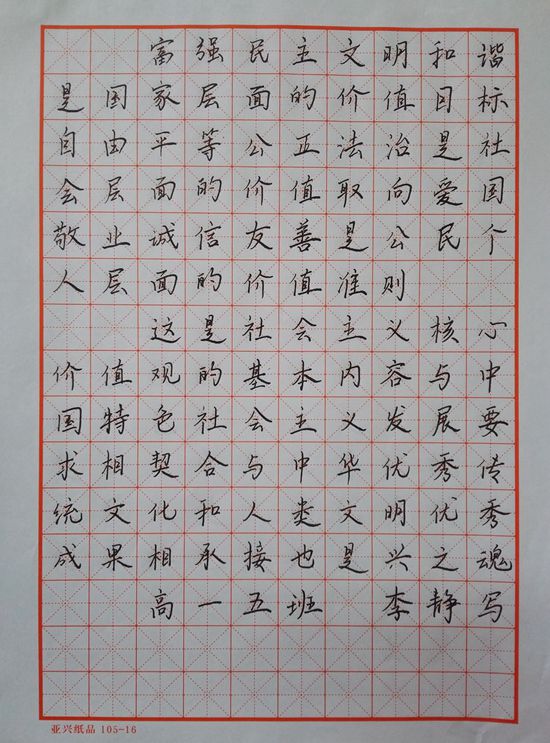 富强民主文明和谐
是国家层面的价值目标
自由平等公正法治是社
会层面的价值取向爱国
敬业诚信友善是公民个
人层面的价值准则
这是社会主义核心
价值观的基本内容与中
国特色社会主义发展要
求相契合与中华优秀传
统文化和人类文明优秀
成果相承接也是兴之魂
高一五班 李静写
亚兴纸品 105-16